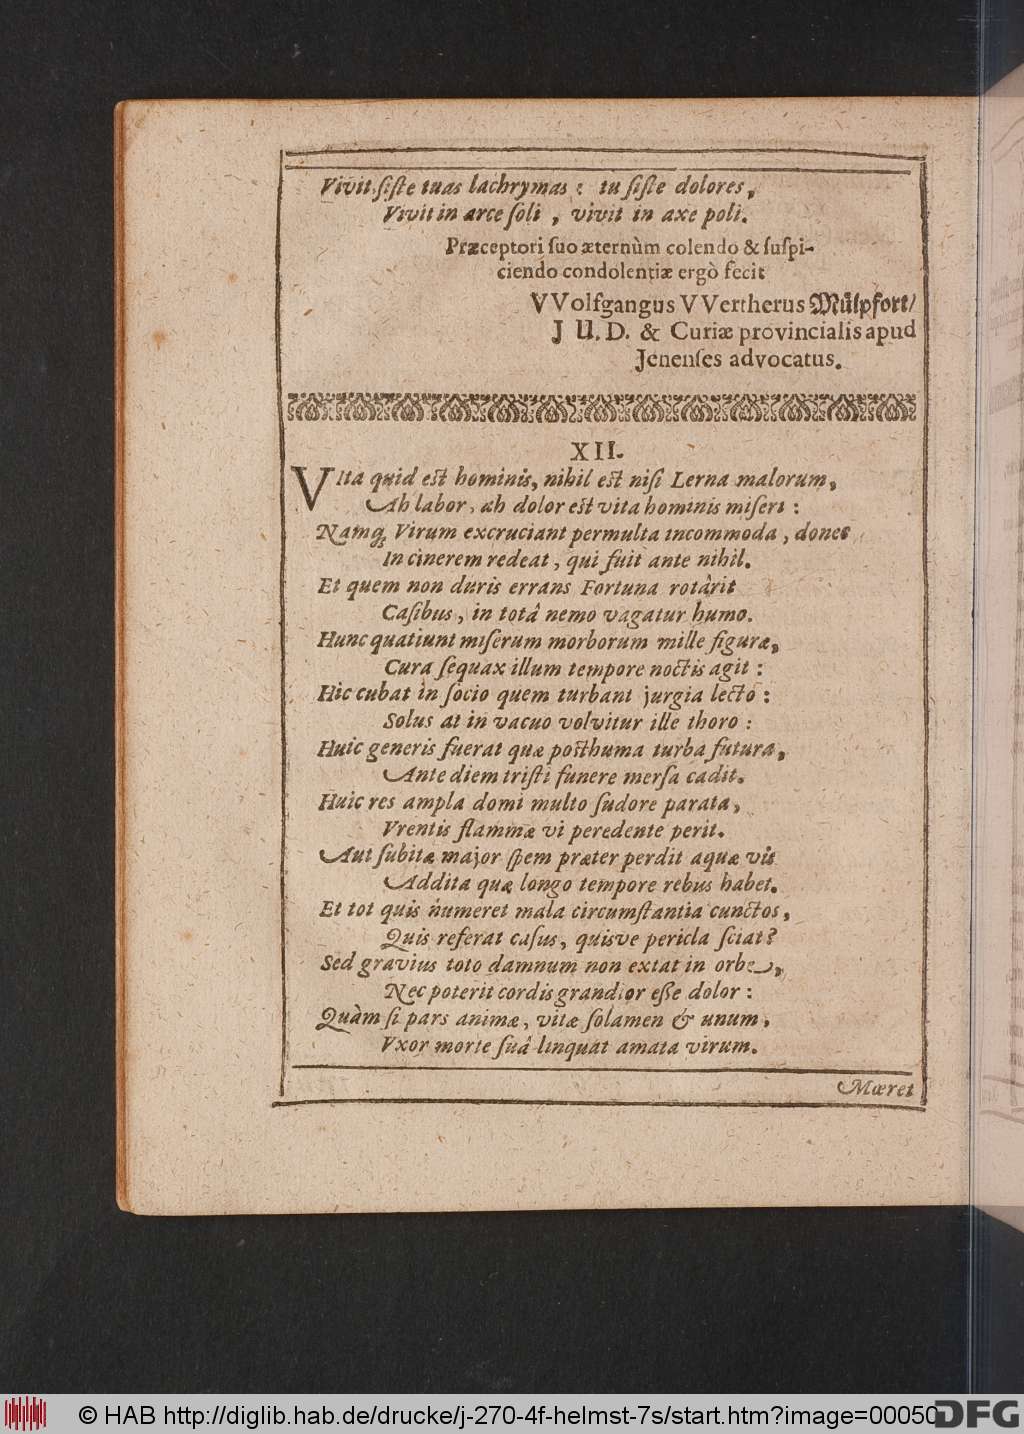 Vivit, siste tuas lachrymas : tu siste dolores,
Vivit in arce soli , vivit in axe poli.
Præceptori suo æternùm colendo & suspi-
ciendo condolentiæ ergò fecit
VVolfgangus VVertherus Mülpfort/
J U. D. & Curiæ provincialis apud
Jenenses advocatus.
XII.
VIta quid est hominis, nihil est nisi Lerna malorum,
Ah labor, ah dolor est vita hominis miseri :
Namq; Virum excruciant permulta incommoda , donec
In cinerem redeat , qui fuit ante nihil.
Et quem non duris errans Fortuna rotârit
Casibus , in totâ nemo vagatur humo.
Hunc quatiunt miserum morborum mille figuræ,
Cura sequax illum tempore noctis agit :
Hic cubat in socio quem turbant jurgia lecto :
Solus at in vacuo volvitur ille thoro :
Huic generis fuerat quæ posthuma turba futura,
Ante diem tristi funere mersa cadit.
Huic res ampla domi multo sudore parata,
Vrentis flammæ vi peredente perit.
Aut subitæ major spem præter perdit aquæ vis
Addita quæ longo tempore rebus habet.
Et tot quis numeret mala circumstantia cunctos,
Quis referat casus, quisve pericla sciat?
Sed gravius toto damnum non extat in orbe,
Nec poterit cordis grandior esse dolor :
Quàm si pars animæ, vitæ solamen & unum,
Vxor morte suâ linquat amata virum.
Mæret
© HAB http://diglib.hab.de/drucke/j-270-4f-helmst-7s/start.htm?image=00050
DFG